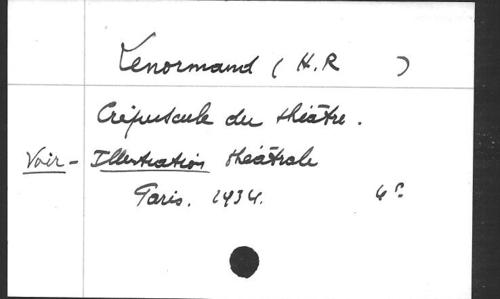 Lenormand ( H.R )
Crépuscule du théâtre.
Voir - Illustration théâtrale
Paris. 1934. 4°